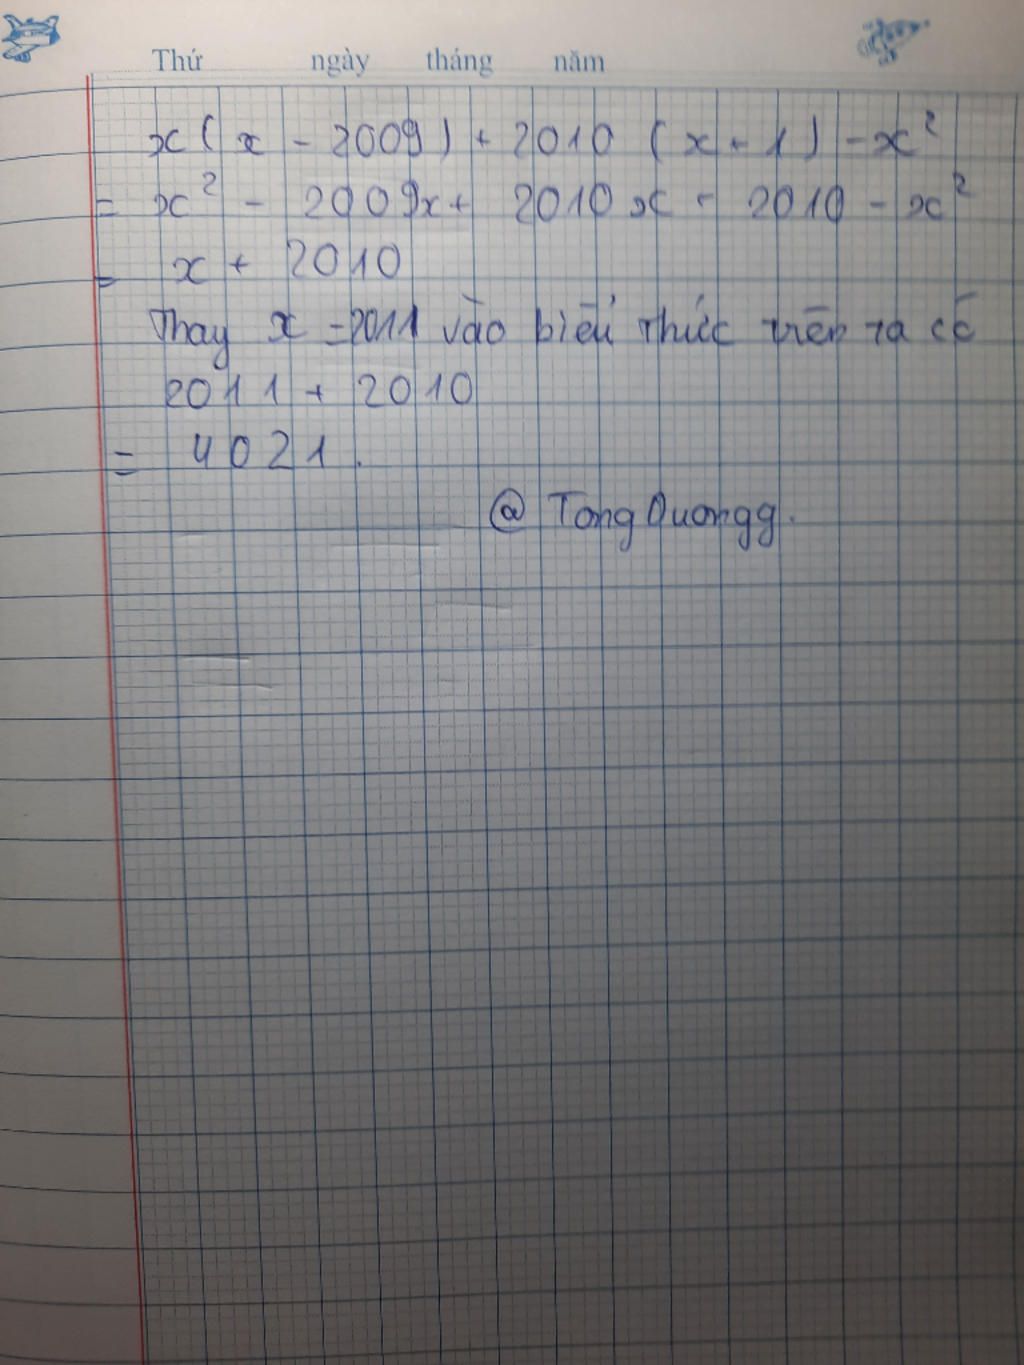 Thứ ngày tháng năm
x( x - 2009) + 2010 ( x + 1 ) - x²
= x² - 2009x + 2010 x + 2010 - x²
= x + 2010
Thay x = 2011 vào biểu thức trên ta có
2011 + 2010
= 4021.
@ TongDuongg.